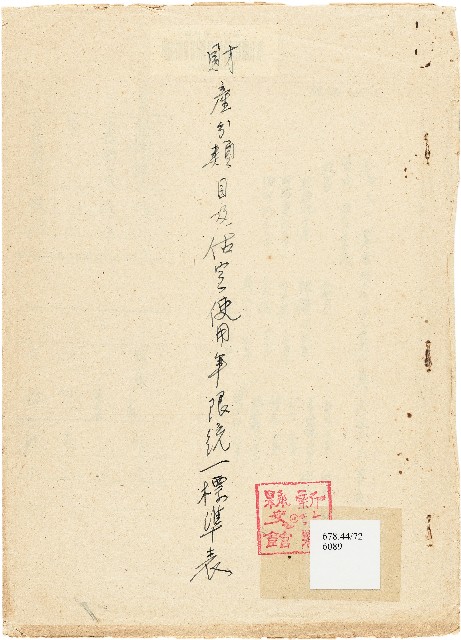 財產分類目及估定使用年限統一標準表
678.44/72
6089